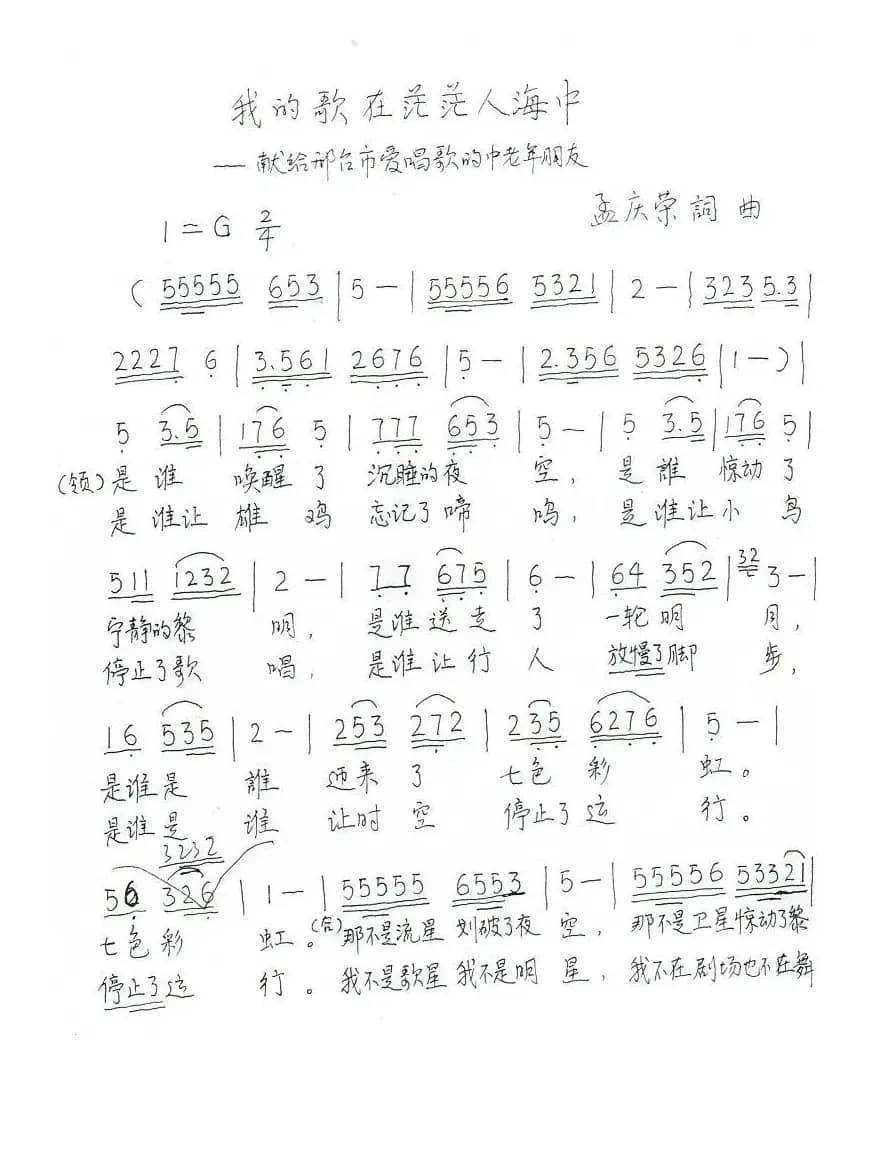 我的歌在茫茫人海中
— 献给邢台市爱唱歌的中老年朋友
1=G 2/4 孟庆荣詞曲
( 55555 653 | 5 — | 55556 5321 | 2 — | 323 5.3 |
2227 6 | 3.561 2676 | 5 — | 2.356 5326 | 1 — ) |
5 3.5 | 176 5 | 777 653 | 5 — | 5 3.5 | 176 5 |
(领) 是谁 唤醒了 沉睡的夜空, 是誰 惊动了
是谁让雄鸡 忘记了啼鸣, 是谁让小鸟
511 1232 | 2 — | 77 675 | 6 — | 64 352 | 32 3 — |
宁静的黎明, 是谁送走了 一轮明月,
停止了歌唱, 是谁让行人 放慢了脚步,
16 535 | 2 — | 253 272 | 235 6276 | 5 — |
是谁是誰 迊来了 七色彩虹。
是谁是谁 让时空 停止了运行。
3232
56 326 | 1 — | 55555 6553 | 5 — | 55556 53321 |
七色彩虹。(合) 那不是流星划破了夜空, 那不是卫星惊动了黎
停止了运行。我不是歌星我不是明星, 我不在剧场也不在舞